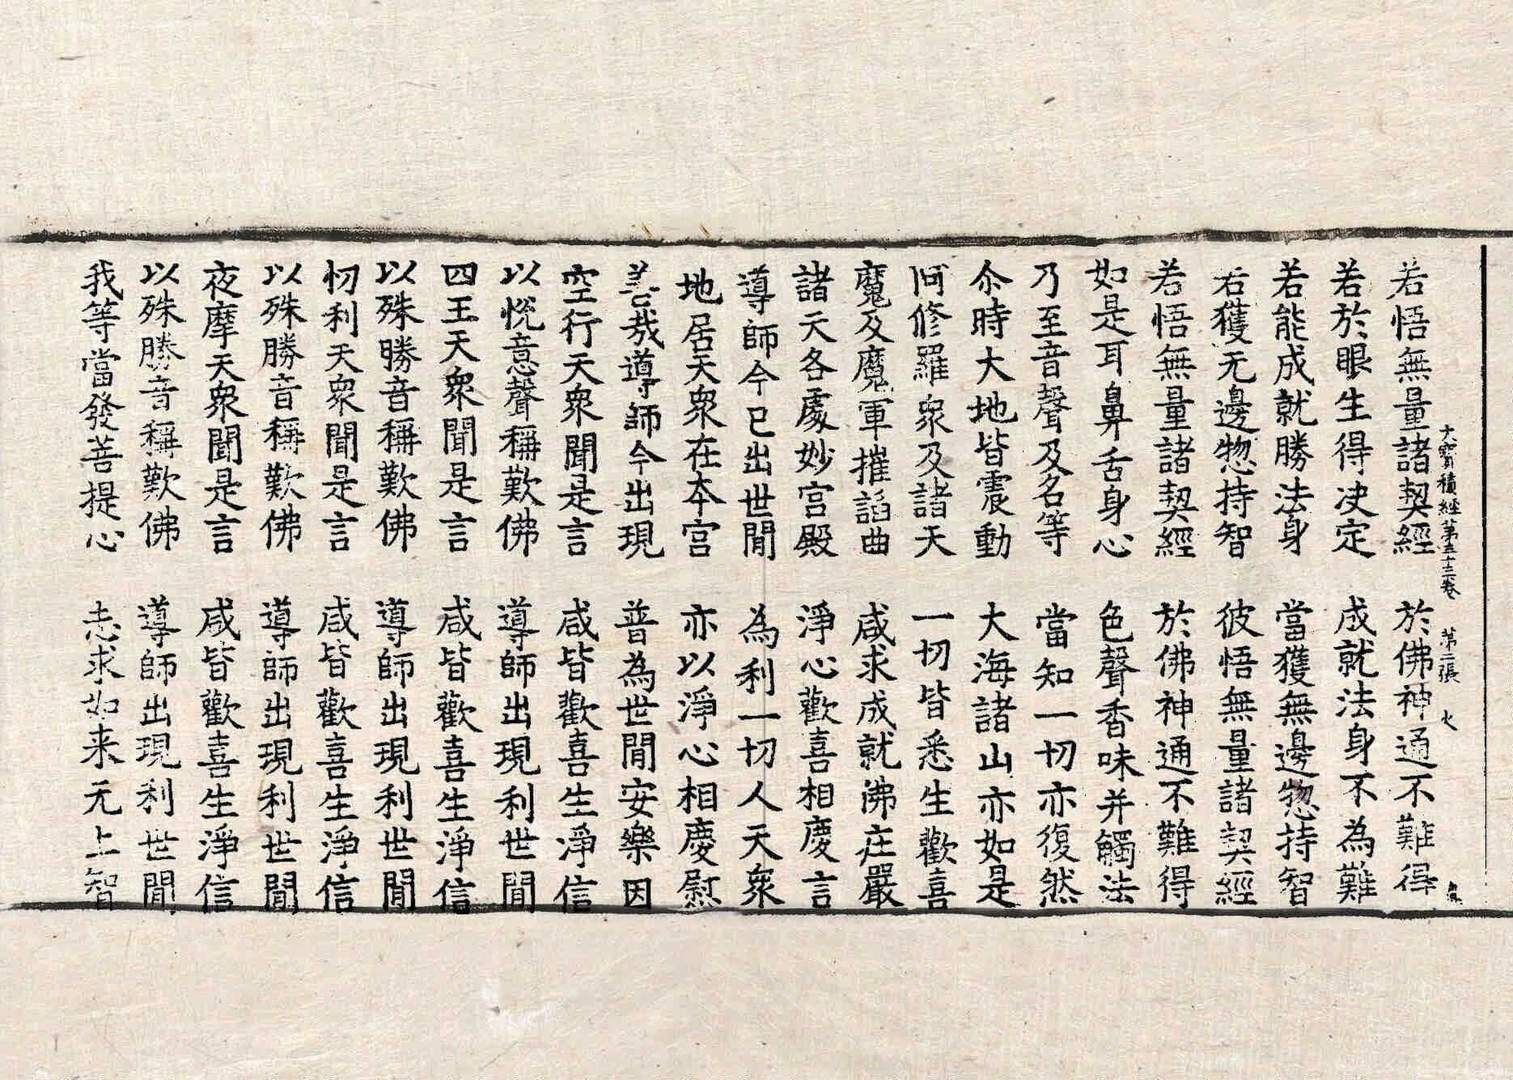 若悟無量諸契經　於佛神通不難得
大寶積經第五十三卷　第二張　火
若於眼生得决定　成就法身不為難
若能成就勝法身　當獲無邊惣持智
若獲无邊惣持智　彼悟無量諸契經
若悟無量諸契經　於佛神通不難得
如是耳鼻舌身心　色聲香味并觸法
乃至音聲及名等　當知一切亦復然
尒時大地皆震動　大海諸山亦如是
阿修羅衆及諸天　一切皆悉生歡喜
魔及魔軍摧諂曲　咸求成就佛莊嚴
諸天各處妙宫殿　淨心歡喜相慶言
導師今已出世閒　為利一切人天衆
地居天衆在本宫　亦以淨心相慶慰
善哉導師今出現　普為世閒安樂因
空行天衆聞是言　咸皆歡喜生淨信
以悅意聲稱歎佛　導師出現利世閒
四王天衆聞是言　咸皆歡喜生淨信
以殊勝音稱歎佛　導師出現利世閒
忉利天衆聞是言　咸皆歡喜生淨信
以殊勝音稱歎佛　導師出現利世閒
夜摩天衆聞是言　咸皆歡喜生淨信
以殊勝音稱歎佛　導師出現利世閒
我等當發菩提心　志求如来无上智